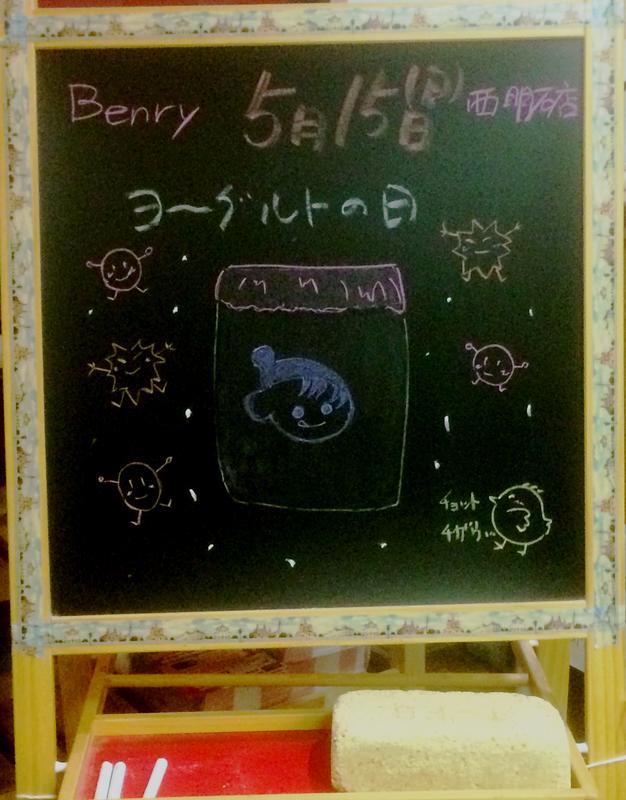 Benry 5月15日(日) 西明石店
ヨーグルトの日
チョット
チガウ…